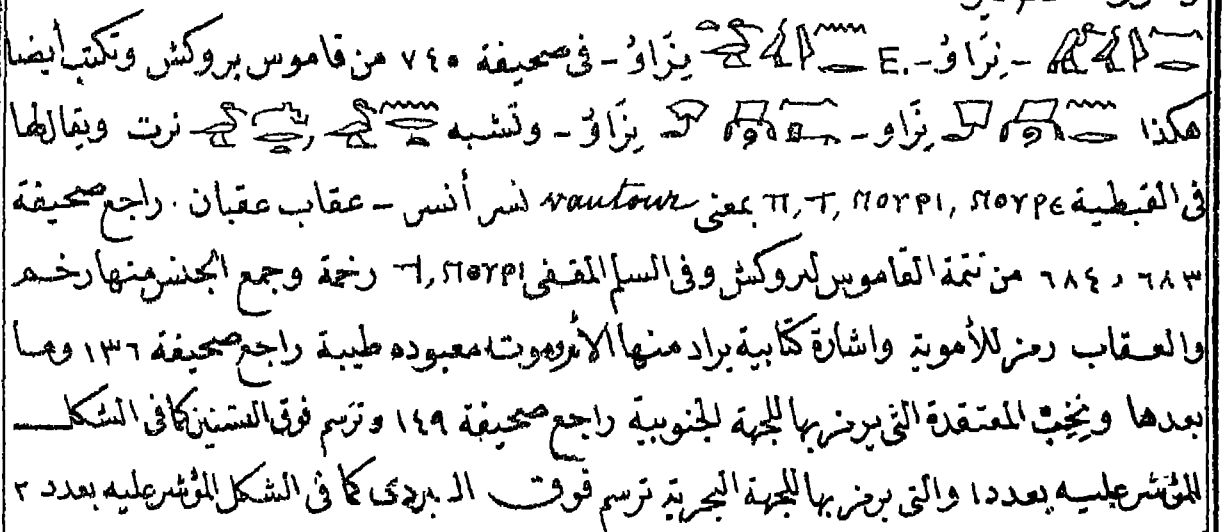 - نِرَاوُ - .E نِرَاوُ - فى صحيفة ٧٤٥ من قاموس بروكش وتكتب أيضا
هكذا نِرَاو - نِرَاوُ - وتشبه نرت ويقال لها
فى القبطية Π,Τ, ⲚⲞⲨⲢⲒ, ⲚⲞⲨⲢⲈ بمعنى vautour نسر أنسر - عقاب عقبان . راجع صحيفة
٦٨٣ و ٦٨٤ من تتمة القاموس لبروكش وفى السلم المقفى Ϯ, ⲚⲞⲨⲢⲒ رخمة وجمع الجنس منها رخم
والعقاب رمز للأموية واشارة كتابية يراد منها الأم وموت معبوده طيبة راجع صحيفة ١٣٦ وما
بعدها ونخب المعتقدة التى يرمز بها للجهة الجنوبية راجع صحيفة ١٤٩ وترسم فوق كما فى الشكل
المؤشر عليه بعدد ١ والتى يرمز بها للجهة البحرية ترسم فوق الـ بردى كما فى الشكل المؤشر عليه بعدد ٢